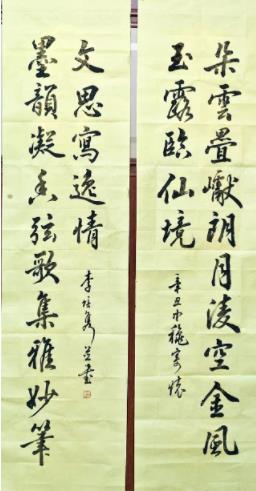 朵雲疊巘朗月凌空金風
玉露臨仙境
辛丑中穐寄懷
墨韻凝香弦歌集雅妙筆
文思寫逸情
李培隽並書